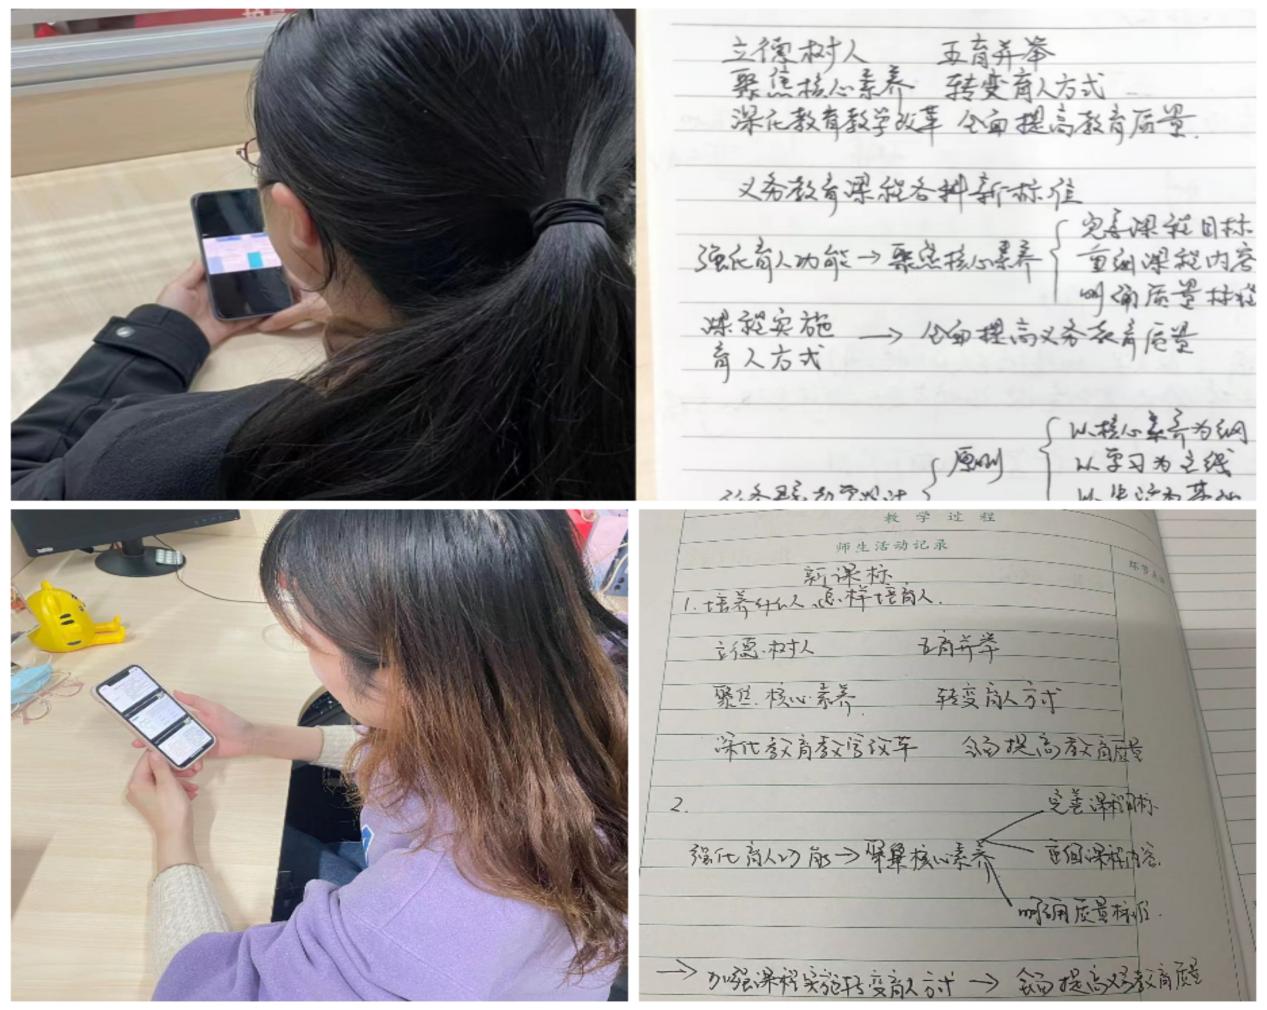 立德树人 五育并举
聚焦核心素养 转变育人方式
深化教育教学改革 全面提高教育质量.
义务教育课程各科新标准
强化育人功能→聚焦核心素养
完善课程目标
重组课程内容
明确质量标准
课程实施
育人方式
→ 全面提高义务教育质量
原则
以核心素养为纲
以学习为主线
以生活为基础
教学过程
师生活动记录
新课标
1.培养什么人 怎样培育人.
立德树人 五育并举
聚焦核心素养 转变育人方式
深化教育教学改革 全面提高教育质量
2.
强化育人功能→聚集核心素养
完善课程目标
重组课程内容
明确质量标准.
→加强课程实施转变育人方式→全面提高义务教育质量